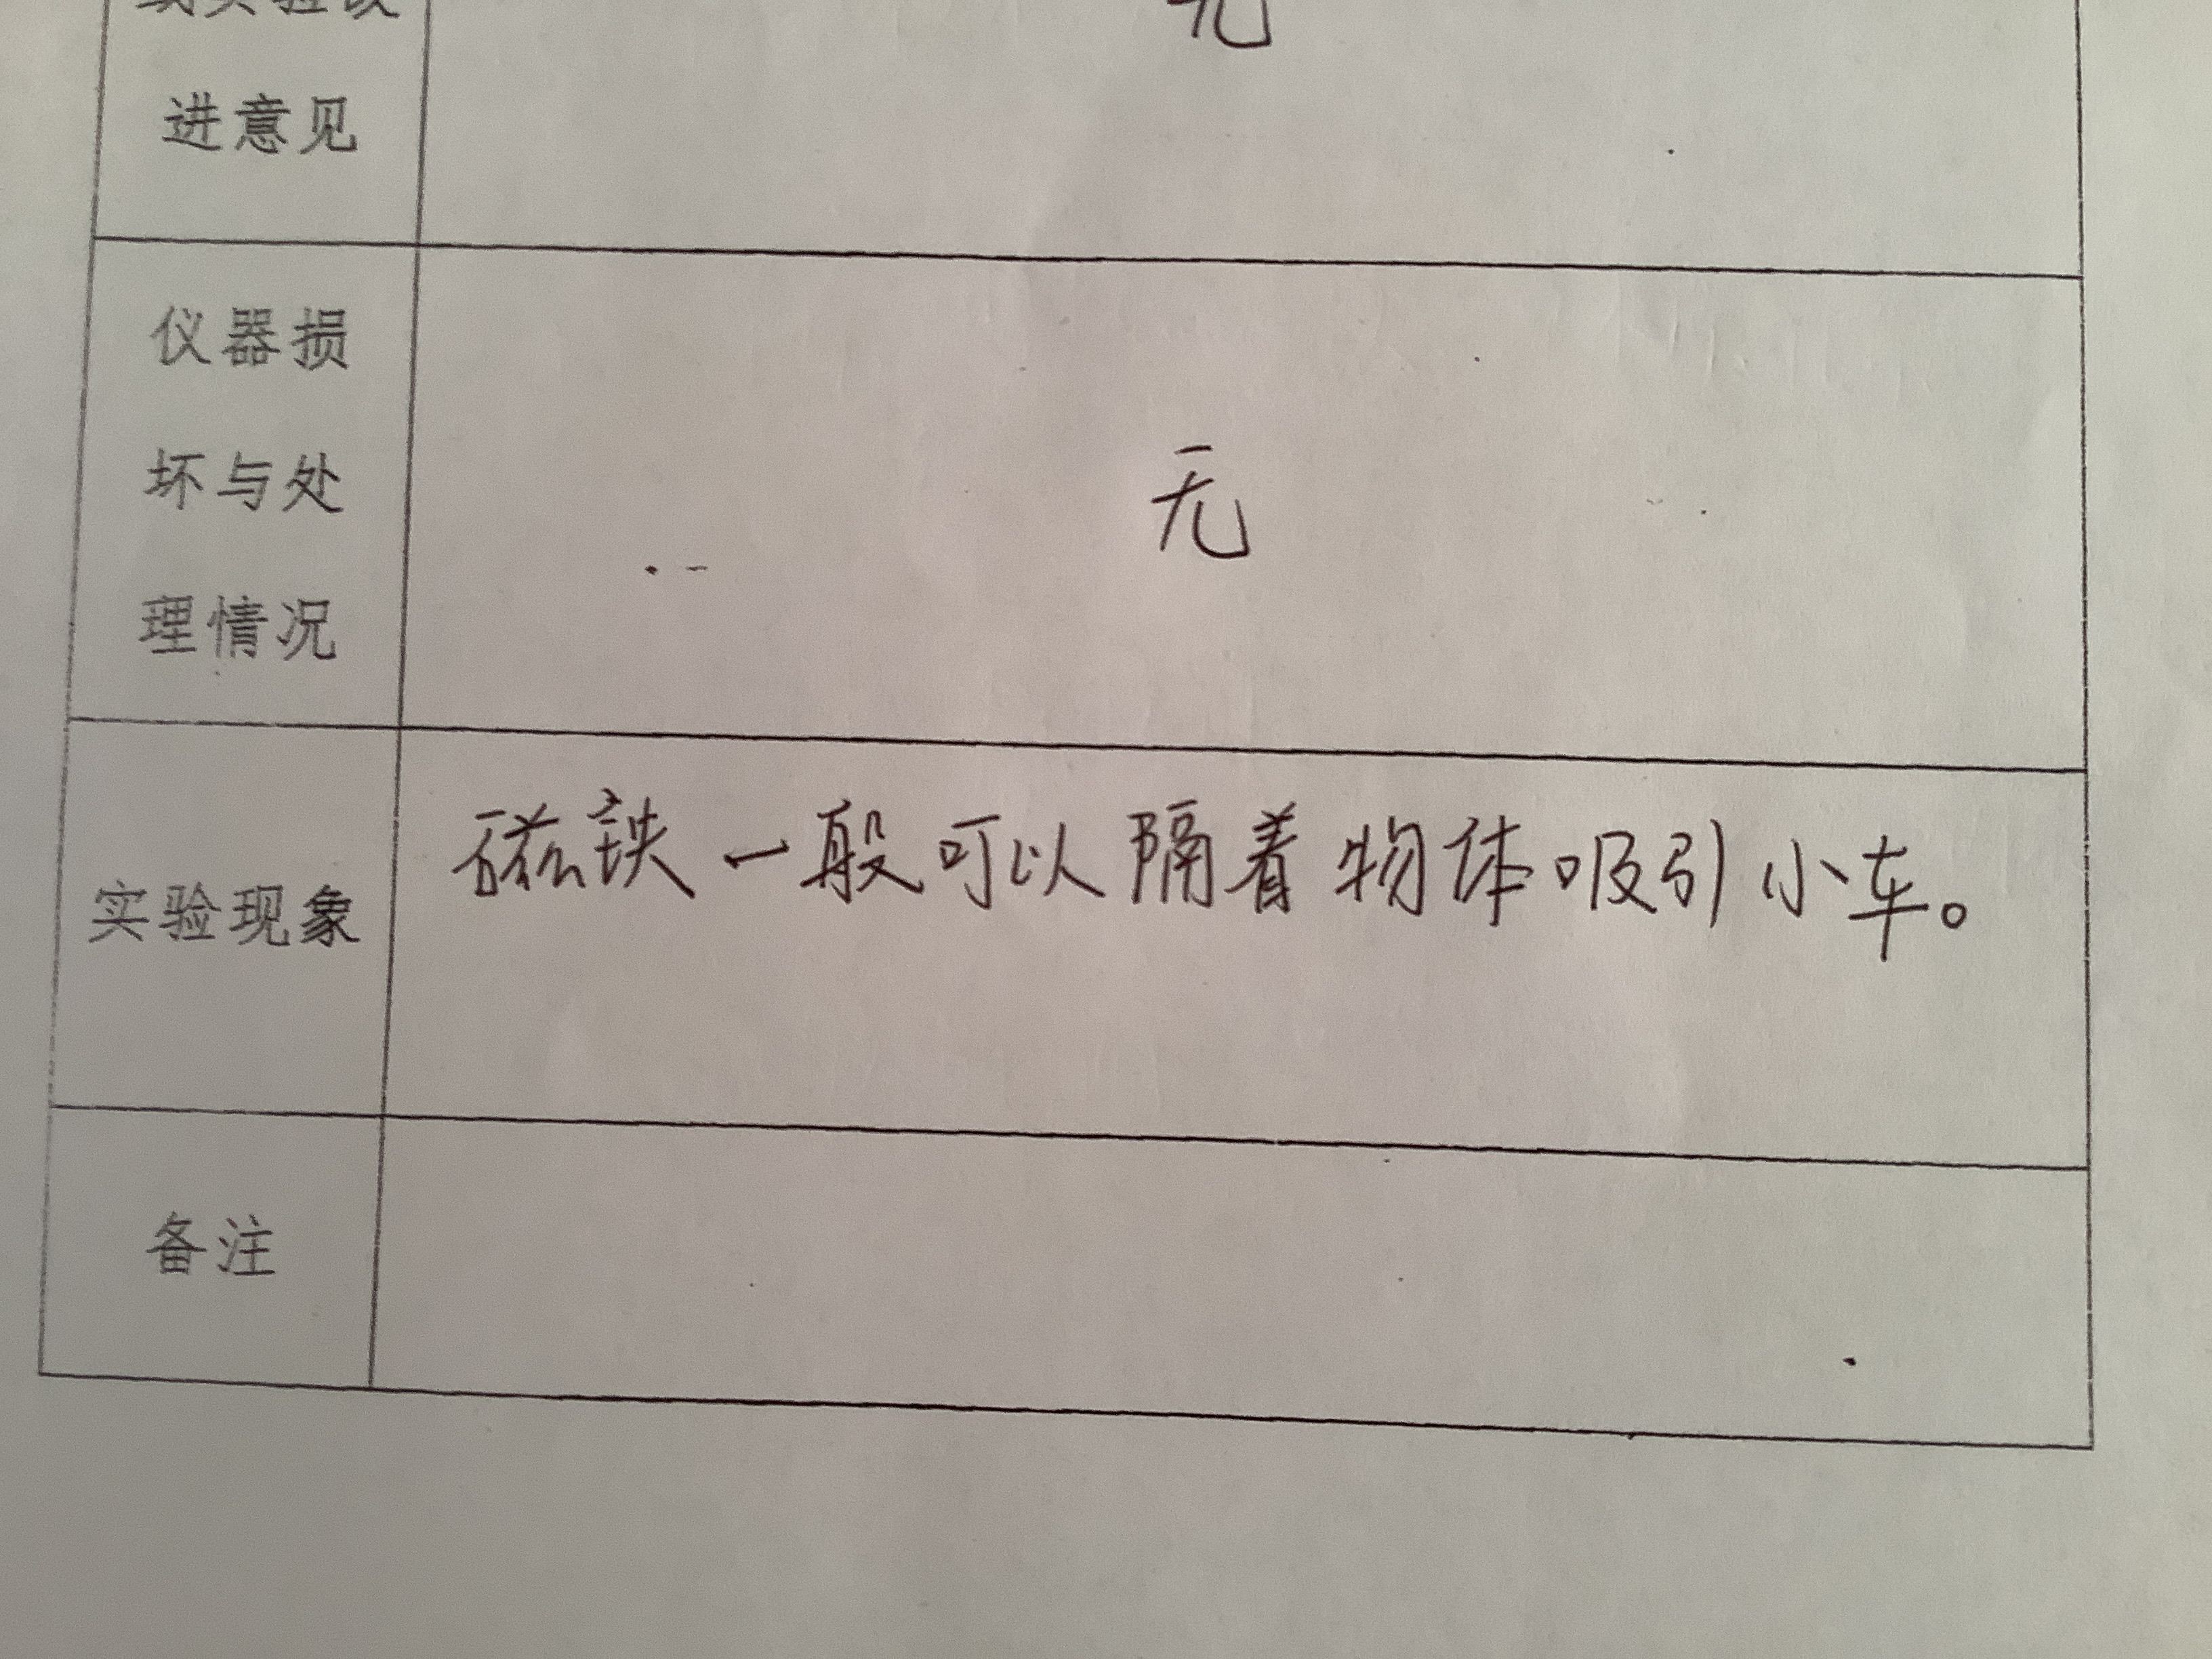 或实验改
无
进意见
仪器损
坏与处
理情况
无
实验现象
磁铁一般可以隔着物体吸引小车。
备注